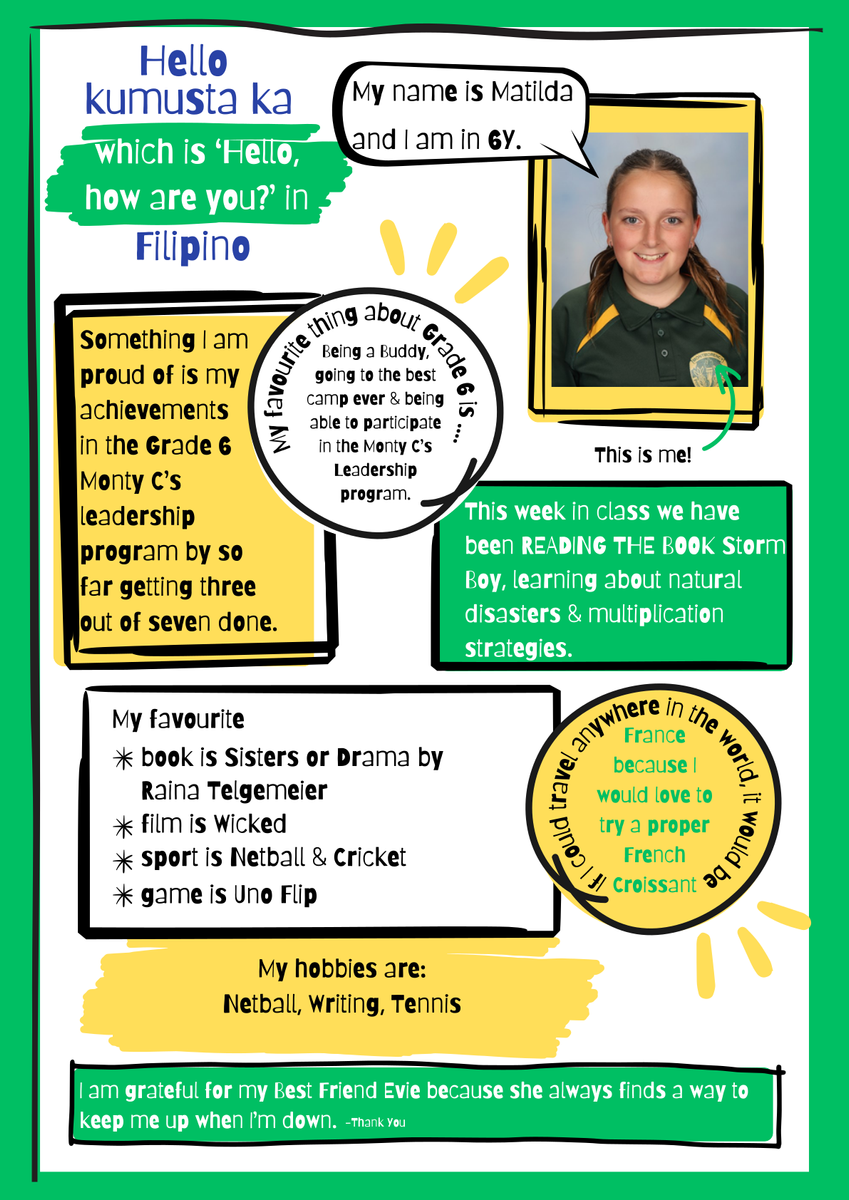 Hello
kumusta ka
which is ‘Hello,
how are you?’ in
Filipino
My name is Matilda
and I am in 6Y.
This is me!
Something I am
proud of is my
achievements
in the Grade 6
Monty C’s
leadership
program by so
far getting three
out of seven done.
My favourite thing about Grade 6 is ....
Being a Buddy,
going to the best
camp ever & being
able to participate
in the Monty C’s
Leadership
program.
This week in class we have
been READING THE BOOK Storm
Boy, learning about natural
disasters & multiplication
strategies.
My favourite
book is Sisters or Drama by
Raina Telgemeier
film is Wicked
sport is Netball & Cricket
game is Uno Flip
If I could travel anywhere in the world, it would be
France
because I
would love to
try a proper
French
Croissant
My hobbies are:
Netball, Writing, Tennis
I am grateful for my Best Friend Evie because she always finds a way to
keep me up when I’m down. -Thank You